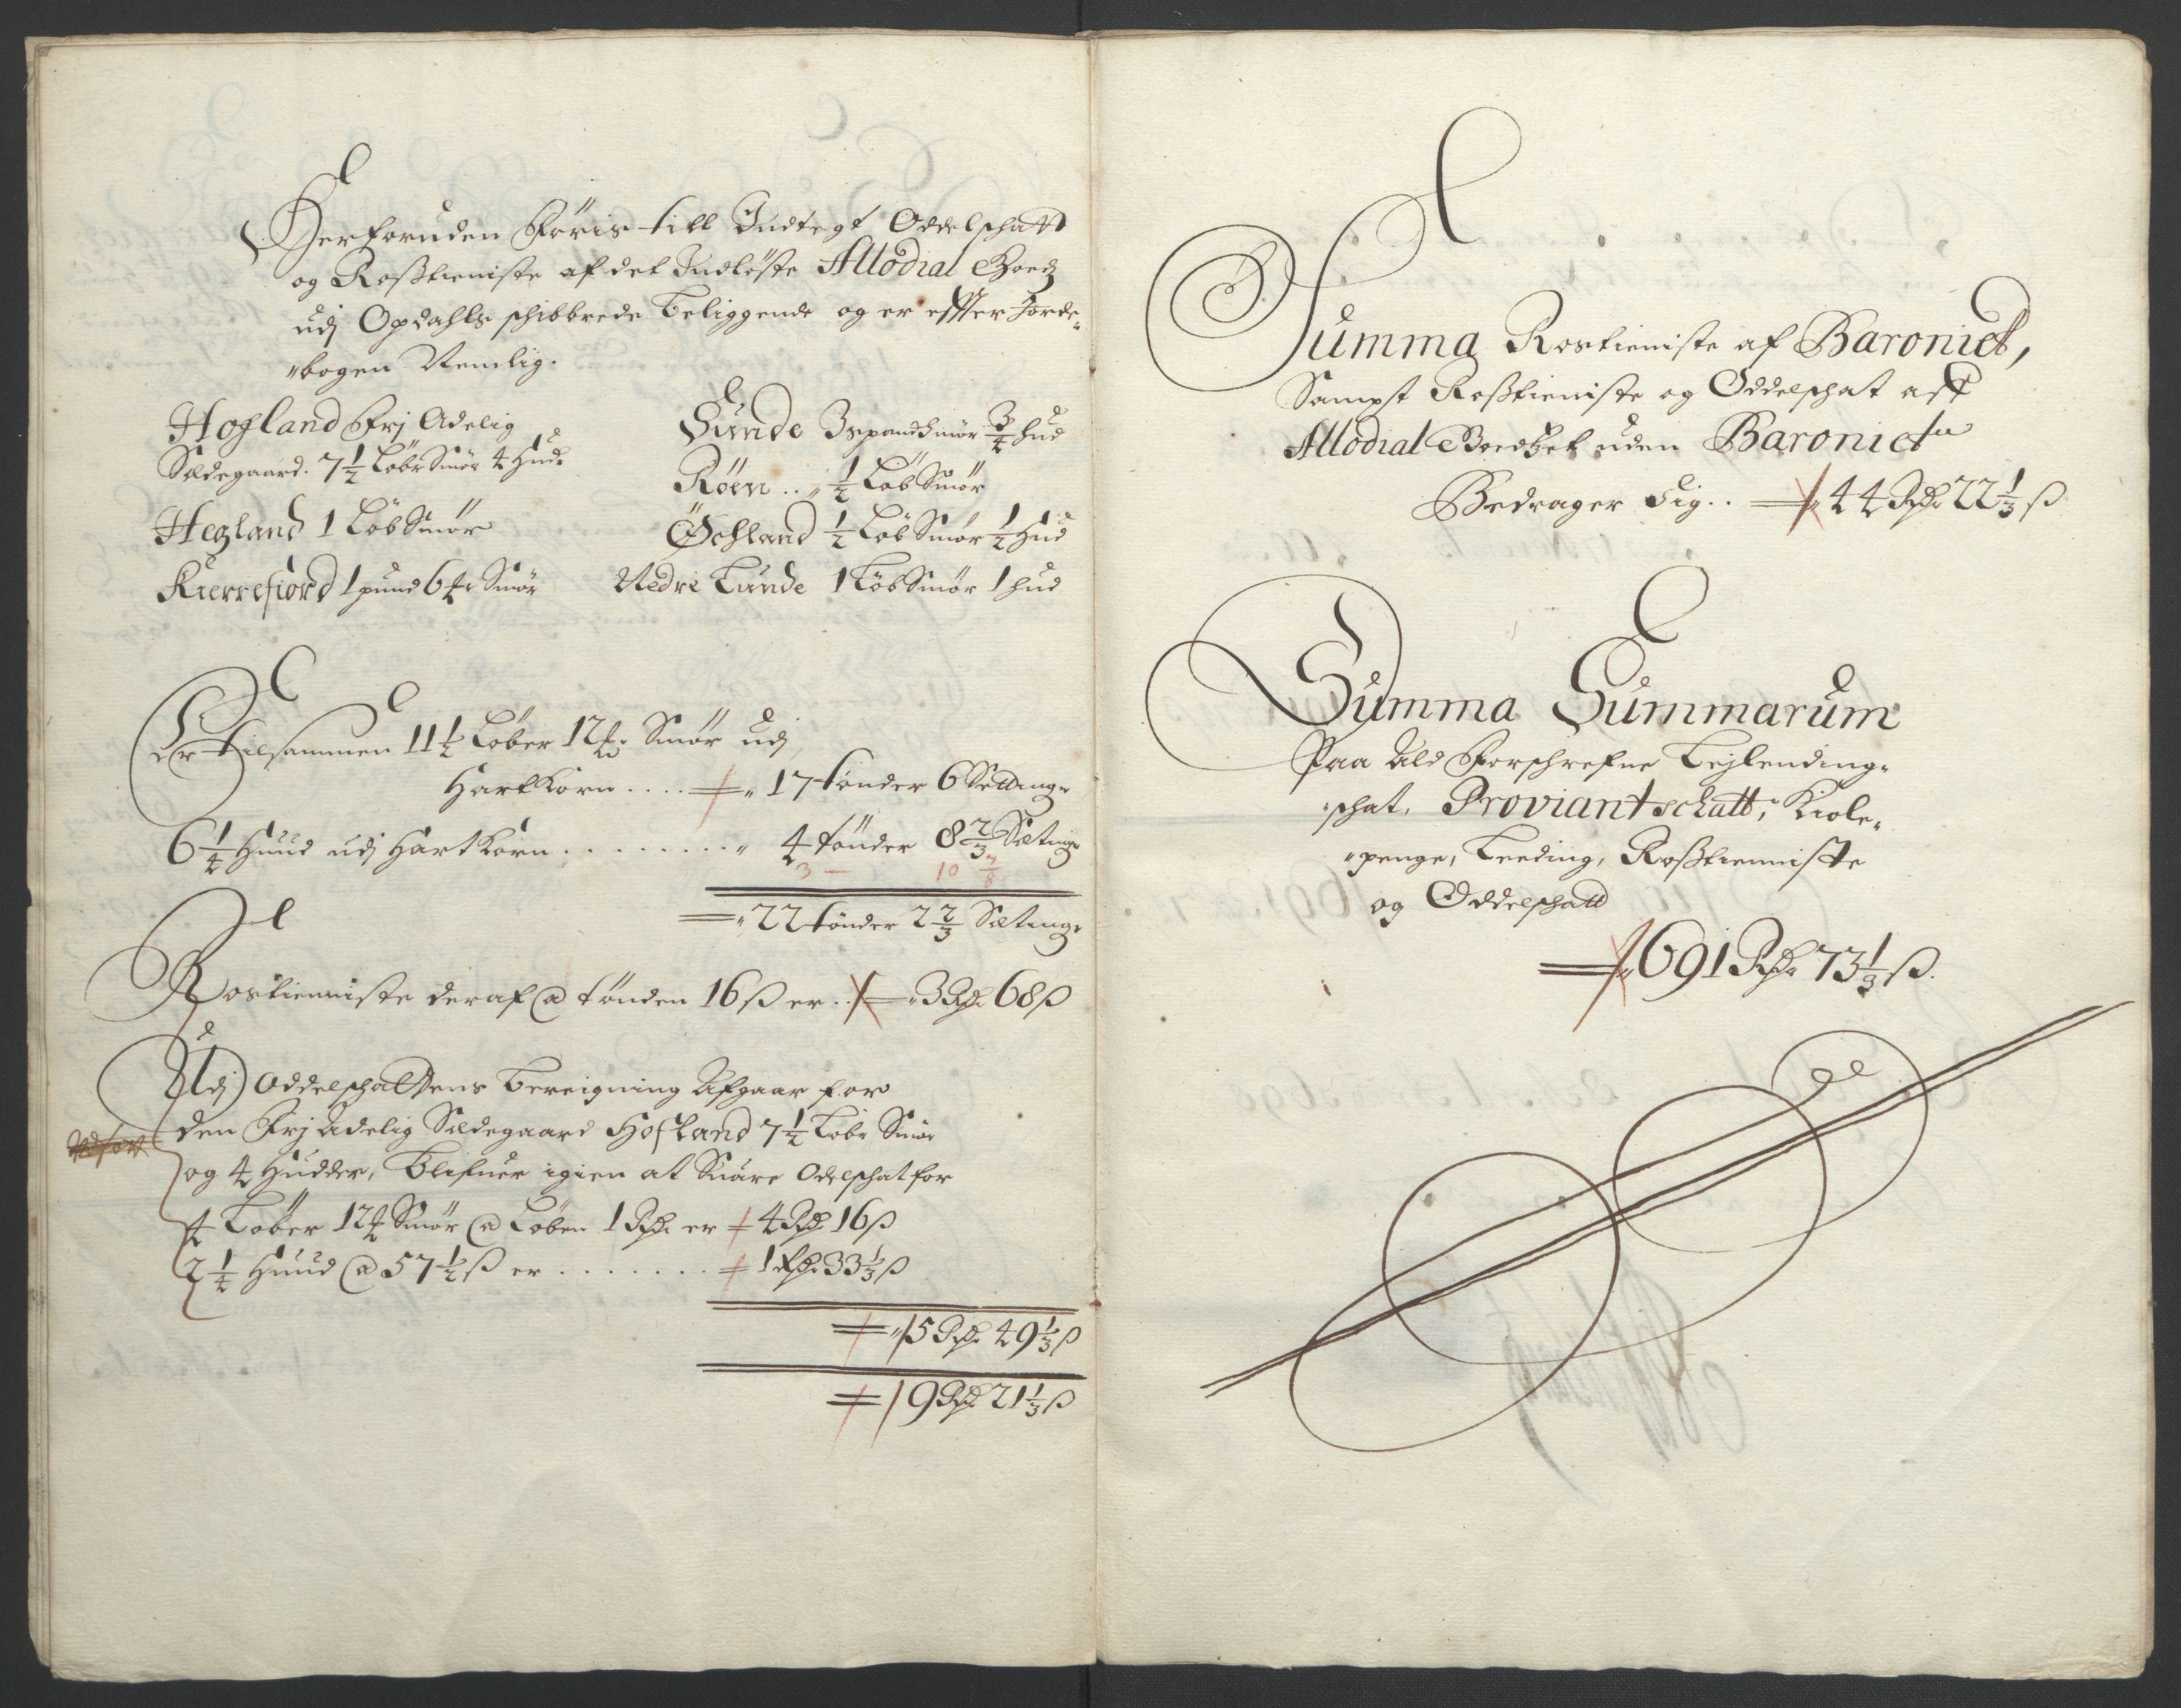 Herforuden Føris till Indtegt Oddelschatt
og Rosstieniste af det Indløste Allodial Goedz
udj Opdahls schibbrede beliggende og er effter Jorde„
„bogen Nemlig.
Hofland Frj Adelig
Sædegaard. 7½ Løbe Smør 4 Hude
Hegland 1 Løb Smør
Kierrefiord 1 pund 6 ℔ Smør
Sunde 3 spand Smør ¾ hud
Røen .. „ ½ Løb Smør
Øchland ½ Løb Smør ½ Hud
Nedre Lunde 1 Løb Smør 1 hud
Er tilsammen 11½ Løber 12 ℔ Smør udj
Hartkorn .... „ 17 tønder 6 Setting
6¼ Huud udj Hartkorn ........ „ 4 tønder 8⅔ Setting
3 — 10 7/8
„ 22 tønder 2⅔ Setting
Rostienniste deraf @ tønden 16 ß er .. „ 3 Rdr 68 ß
Udj Oddelschattens bereigning Afgaar for
den Frj Adelig Sædegaard Hofland 7½ Løbe Smør
og 4 Hudder, blifuer igien at Suare Odelschat for
4 Løber 12 ℔ Smør @ Løben 1 Rdr er 4 Rdr 16 ß
2¼ Huud @ 57½ ß er ....... 1 Rdr 33⅓ ß
„ 5 Rdr 49⅓ ß
9 Rdr 21⅓ ß
Summa Rostieniste af Baroniet,
Sampt Rosstieniste og Oddelschat aff
Allodial Goedzet uden Baroniet
Bedrager Sig .. „ 44 Rdr 22⅓ ß
Summa Summarum
Paa Ald Forschrefne Lejlending„
„schat, Proviantschatt, Kiole„
„penge, Leeding, Rosstienniste
og Oddelschatt
„ 691 Rdr 73⅓ ß.